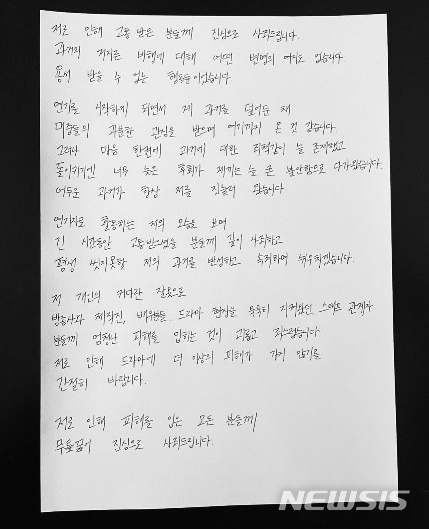 저로 인해 고통 받은 분들께 진심으로 사죄드립니다.
과거에 저지른 비행에 대해 어떤 변명의 여지도 없습니다.
용서 받을 수 없는 행동들이었습니다.
연기를 시작하게 되면서 제 과거를 덮어둔 채
대중들의 과분한 관심을 받으며 여기까지 온 것 같습니다.
그러나 마음 한편에 과거에 대한 죄책감이 늘 존재했고
돌이키기엔 너무 늦은 후회가 저에게는 늘 큰 불안함으로 다가왔습니다.
어두운 과거가 항상 저를 짓눌러 왔습니다.
연기자로 활동하는 저의 모습을 보며
긴 시간동안 고통 받으셨을 분들께 깊이 사죄하고
평생 씻지못할 저의 과거를 반성하고 속죄하며 뉘우치겠습니다.
저 개인의 커다란 잘못으로
방송사와 제작진, 배우분들, 드라마 현장을 묵묵히 지켜왔던 스태프 관계자
분들께 엄청난 피해를 입히는 것이 괴롭고 죄스럽습니다.
저로 인해 드라마에 더 이상의 피해가 가지 않기를
간절히 바랍니다.
저로 인해 피해를 입은 모든 분들께
무릎꿇어 진심으로 사죄드립니다.
NEWSIS